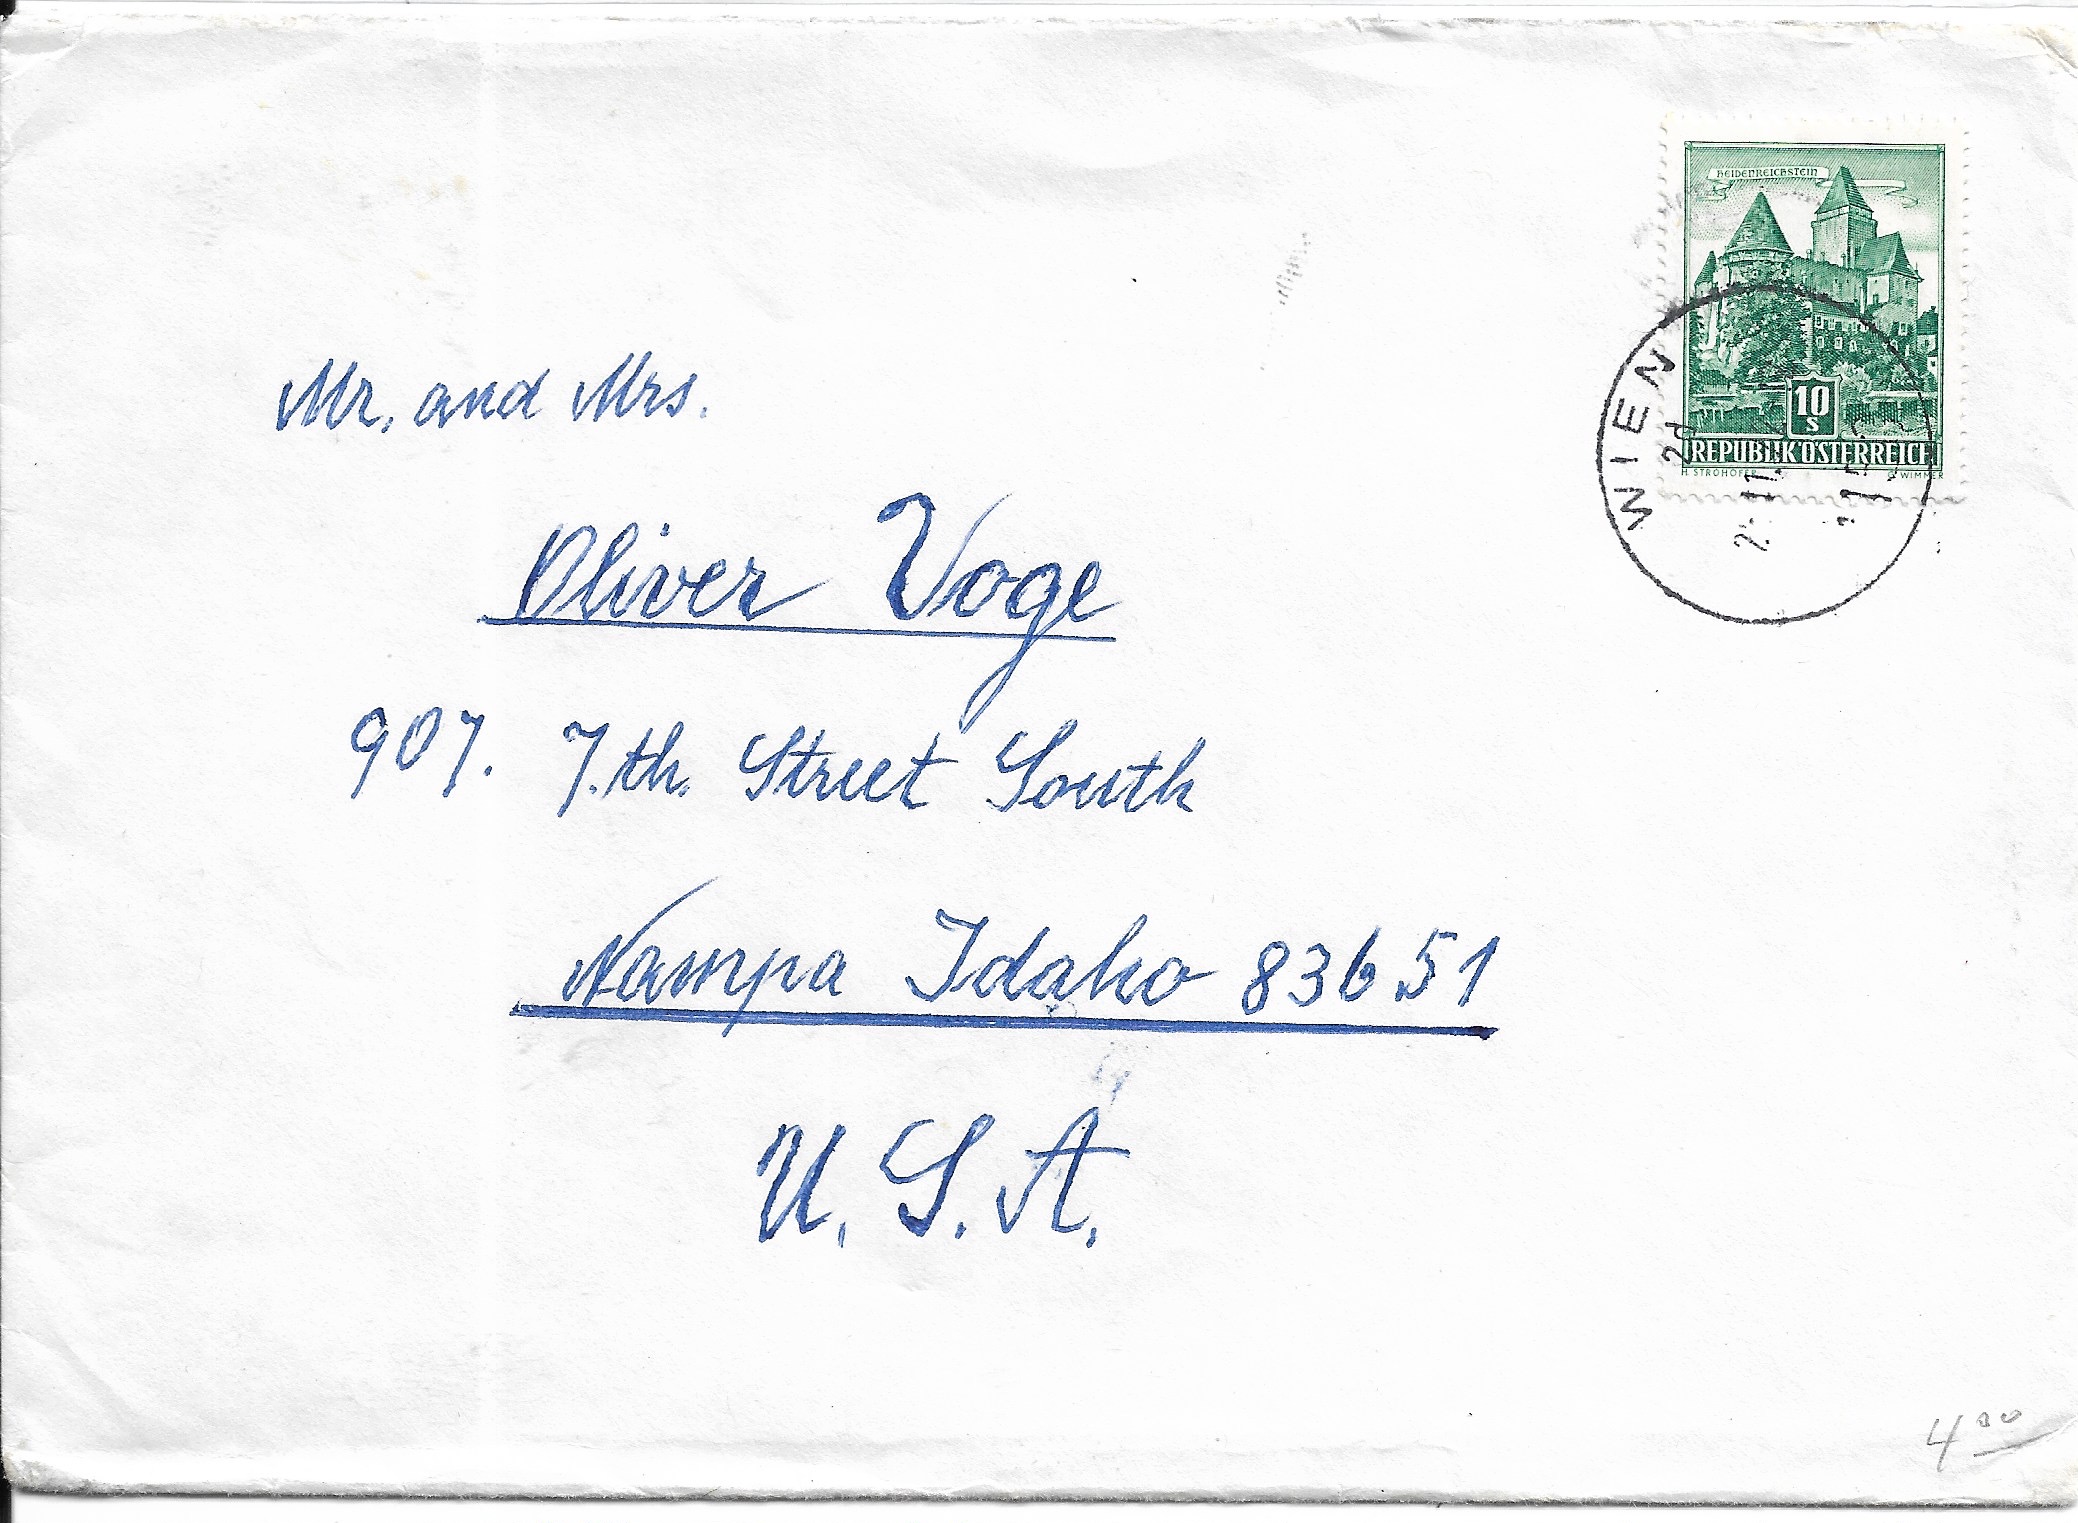 HEIDENREICHSTEIN
10
S
REPUBLIK ÖSTERREICH
H. STROHOFER G. WIMMER
WIEN
Mr. and Mrs.
Oliver Voge
907. 7.th. Street South
Nampa Idaho 83651
U. S. A.
4 00